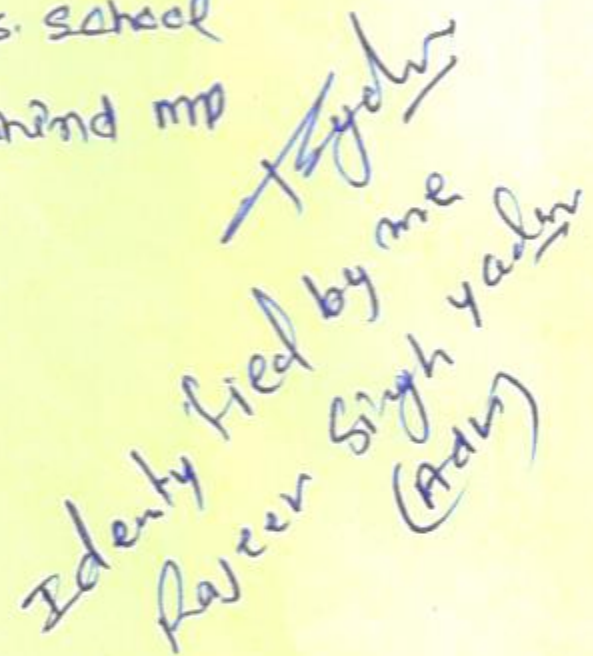 s. School
hind mp
Identy fied by me
Singh yadav
(Adv)